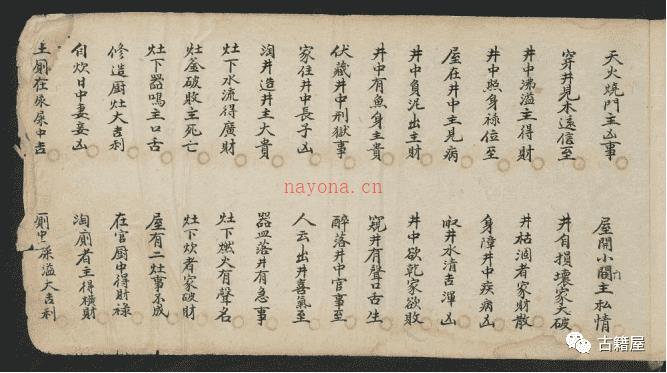 天火燒門主凶事 屋開小閣主私情
穿井見水遠信至 井自損壞家大破
井中沸溢主得財 井枯涸者家財散
井中照身祿位至 身障井中疾病凶
屋在井中主見病 取井水清吉渾凶
井中負泥出主財 井中欲乾家欲敗
井中有魚身主貴 窺井有聲口舌生
伏藏井中刑獄事 醉落井中官事至
家住井中長子凶 人云出井喜氣至
淘井造井主大貴 器皿落井有急事
灶下水流得廣財 灶下燃火有聲名
灶釜破敗主死亡 灶下炊者家破財
灶下器鳴主口舌 屋有二灶事不成
修造厨灶大吉利 在官厨中得財祿
自炊日中妻妾凶 淘廁者主得橫財
廁在屎尿中吉 廁中溢大吉利
nayona.cn
古籍屋